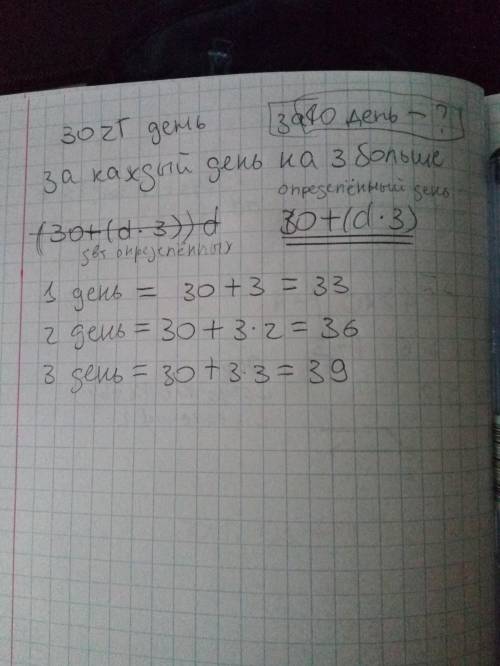 30 zt день
за 40 день - ?
за каждый день на 3 больше
определённый день
(30+(d·3))d
30+(d·3)
определённых
1 день = 30+3 = 33
2 день = 30+3·2 = 36
3 день = 30+3·3 = 39